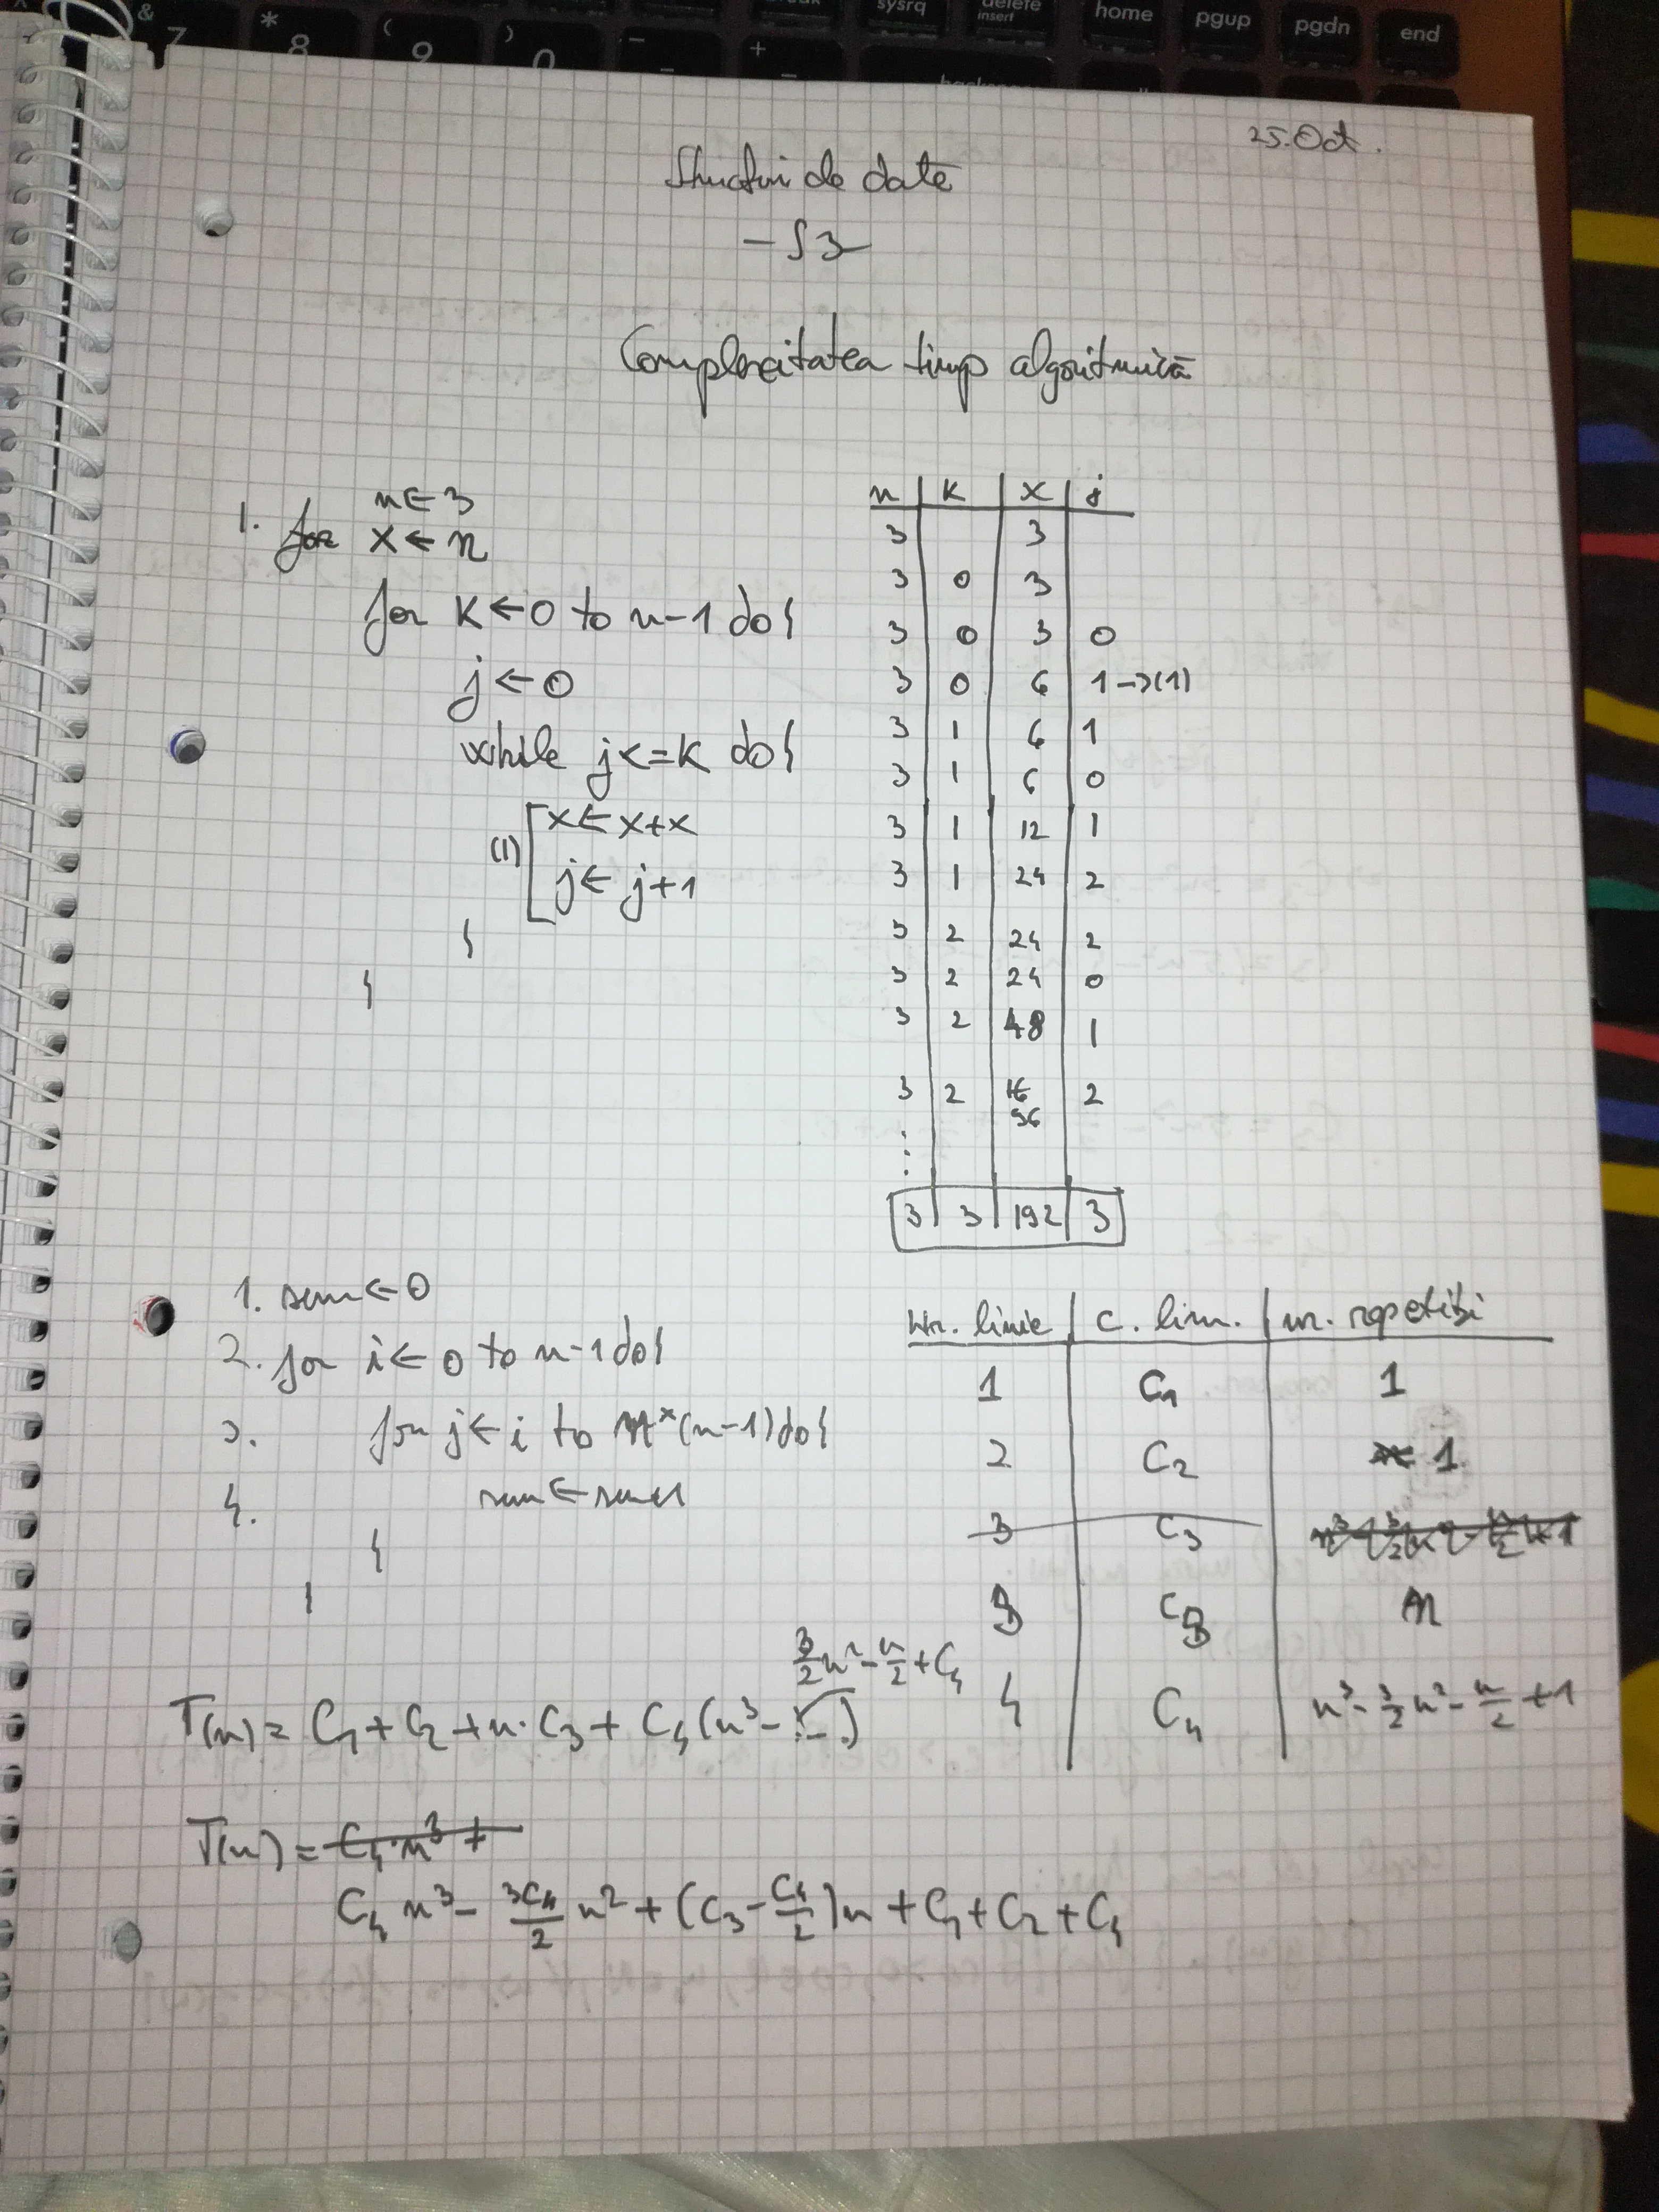 & 7 * 8 ( 9 ) 0 _ - + = sysrq delete insert home pgup pgdn end
25.Oct.
Structuri de date
- S3 -
Complexitatea timp algoritmică
n ← 3
1. for x ← n
for k ← 0 to n-1 do {
j ← 0
while j <= k do {
(1) x ← x+x
j ← j+1
}
}
n | k | x | j
3 | | 3 |
3 | 0 | 3 |
3 | 0 | 3 | 0
3 | 0 | 6 | 1 → (1)
3 | 1 | 6 | 1
3 | 1 | 6 | 0
3 | 1 | 12 | 1
3 | 1 | 24 | 2
3 | 2 | 24 | 2
3 | 2 | 24 | 0
3 | 2 | 48 | 1
3 | 2 | 96 | 2
⋮
3 | 3 | 192 | 3
1. sum ← 0
2. for i ← 0 to n-1 do {
3. for j ← i to n*(n-1) do {
4. sum ← sum+1
}
}
Nr. linie | C. lin. | nr. repetiții
1 | C1 | 1
2 | C2 | 1
3 | C3
3 | C3 | n
4 | C4 | n³ - 3/2 n² - n/2 + 1
3/2 n² - n/2 + C4
T(n) = C1 + C2 + n·C3 + C4 (n³ - ...)
T(n) = C4·n³ +
C4 n³ - 3C4/2 n² + (C3 - C4/2) n + C1 + C2 + C4